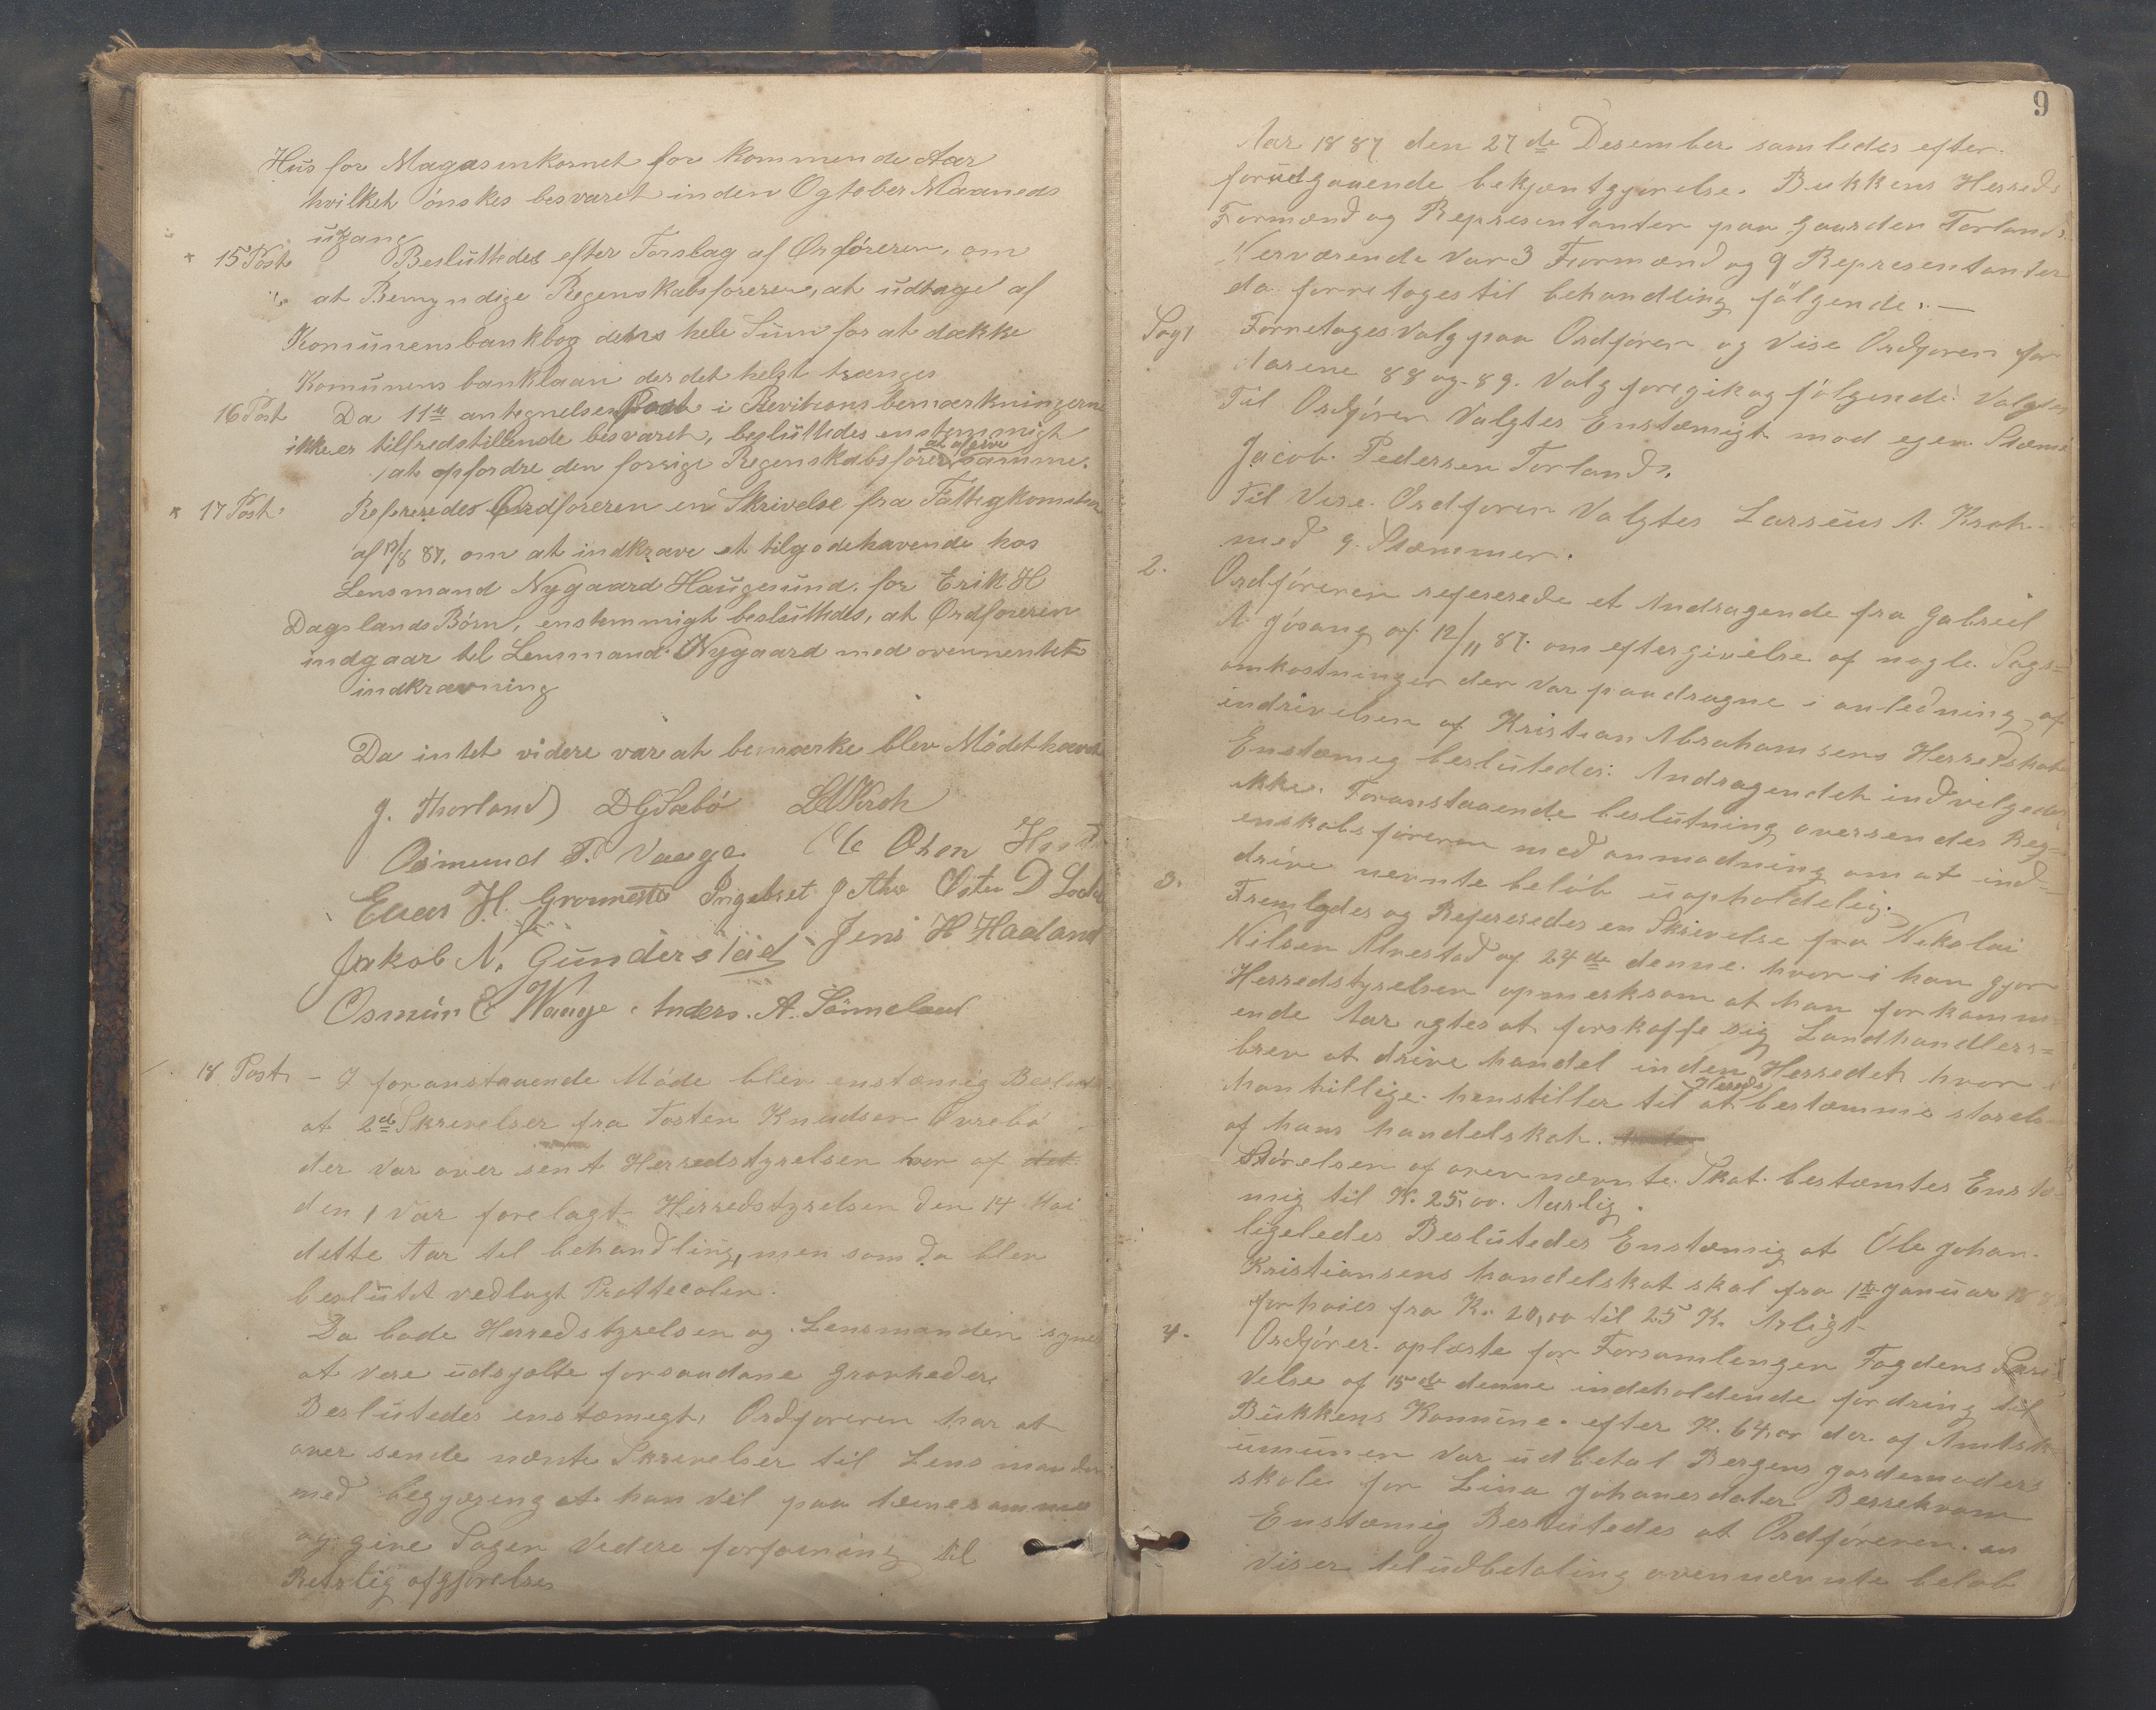 Hus for Magasinkornet for kommende Aar
hvilket ønskes besvaret inden Ogtober Maaneds
udgang
15 Post Besluttedes efter Forslag af Ordføreren, om
at Bemyndige Regenskabsføreren, at udtage af
Komunens bankbog dens hele Sum for at dække
Komunens banklaan der det helst trænges
16 Post Da 11te antegnelses Post i Revitions bemærkningerne
ikke er tilfredstillende besvaret, besluttedes enstemmigt
at opfordre den forrige Regenskabsfører at afgive samme.
17 Post Refereredes Ordføreren en Skrivelse fra Fattigkomisn
af 13/8 87, om at indkræve et tilgodehavende hos
Lensmand Nygaard Haugesund for Erik H
Dagslands Børn, enstemmigt besluttedes, at Ordføreren
indgaar til Lensmand Nygaard med ovennentet
indkrævning
Da intet videre var at bemærke blev Mødet hævet
J. Thorland D G Sæbø L A Kroh
Osmund T. Vaage Ole Olsen
Enar H. Grønnestad Ingebret J Østen D
Jakob N. Gunderstad Jens H Haaland
Osmun E Waage Anders. A. Sønneland
18 Post – I foranstaaende Møde blev enstæmig Beslut
at 2de Skrivelser fra Tosten Knudsen Øvrebø
der var over sent Herredstyrelsen hvor af det
den 1 var forelagt Herredstyrelsen den 14 Mai
dette Aar til behandling, men som da blev
beslutet vedlagt Prottecolen.
Da bode Herredstyrelsen og Lensmanden synes
at være udsjalte for saadane grovheder
Beslutedes enstæmegt, Ordføreren har at
over sende nænte Skrevelser til Lensmanden
med begjæreng at han vil paa tænesomme
og give Sagen Vedere forføening til
Retslig afgjørelse
9
Aar 1887 den 27de Desember samledes efter
forudgaaende bekjentgjørelse. Bukkens Herreds
Formænd og Representanter paa Gaarden Torland.
Nerværende var 3 Formænd og 9 Representanter
da forretoges til behandling følgende. —
Sag 1 Forretoges Valg paa Ordfører og Vise Ordfører for
Aarene 88 og 89. Valg foregik og følgende Valgtes
Til Ordfører Valgtes Enstæmigt mod egen Stæme
Jacob Pedersen Torland.
Til Vise Ordfører Valgtes Larseus A. Kroh
med 9 Stæmmer.
2. Ordføreren refererede et Andragende fra Gabriel
A. Jøsang af 12/11 87. om eftergivelse af nogle Sags=
omkostninger der var paadragne i anledning af
indrivelsen af Kristian Abrahamsens Herredskat
Enstæmig beslutedes: Andragendet indvilgedes
ikke. Foranstaaende beslutning oversendes Reg=
enskabsføreren med anmodning om at ind=
drive nevnte beløb uopholdelig.
3. Fremlagdes og Refereredes en Skrivelse fra Nikolai
Nilsen Alvestad af 24de denne. hvor i han gjør
Herredstyrelsen opmerksom at han for komm=
ende Aar agtes at forskaffe sig Landhandlers=
brev at drive handel inden Herredet hvor
han tillige henstiller til Hereds at bestæmme størels
af hans handelskat.
Størelsen af ovennævnte Skat bestæmtes Enstæ
mig til K. 25,00. Aarlig.
ligeledes Beslutedes Enstæmig at Ole Johan
Kristiansens handelskat skal fra 1te Januar 18
forhøies fra K. 20,00 til 25 K. Arligt
4. Ordfører oplæste for Forsamlingen Fogdens Skri
velse af 15de denne indeholdende fordring til
Bukkens Komune efter K. 64,00 der af Amtsk
umunen var udbetal Bergens jordemoders
skole for Lina Johanesdater Berrekvam
Enstæmig Beslutedes at Ordføreren an
viser til udbetaling ovennævnte beløb